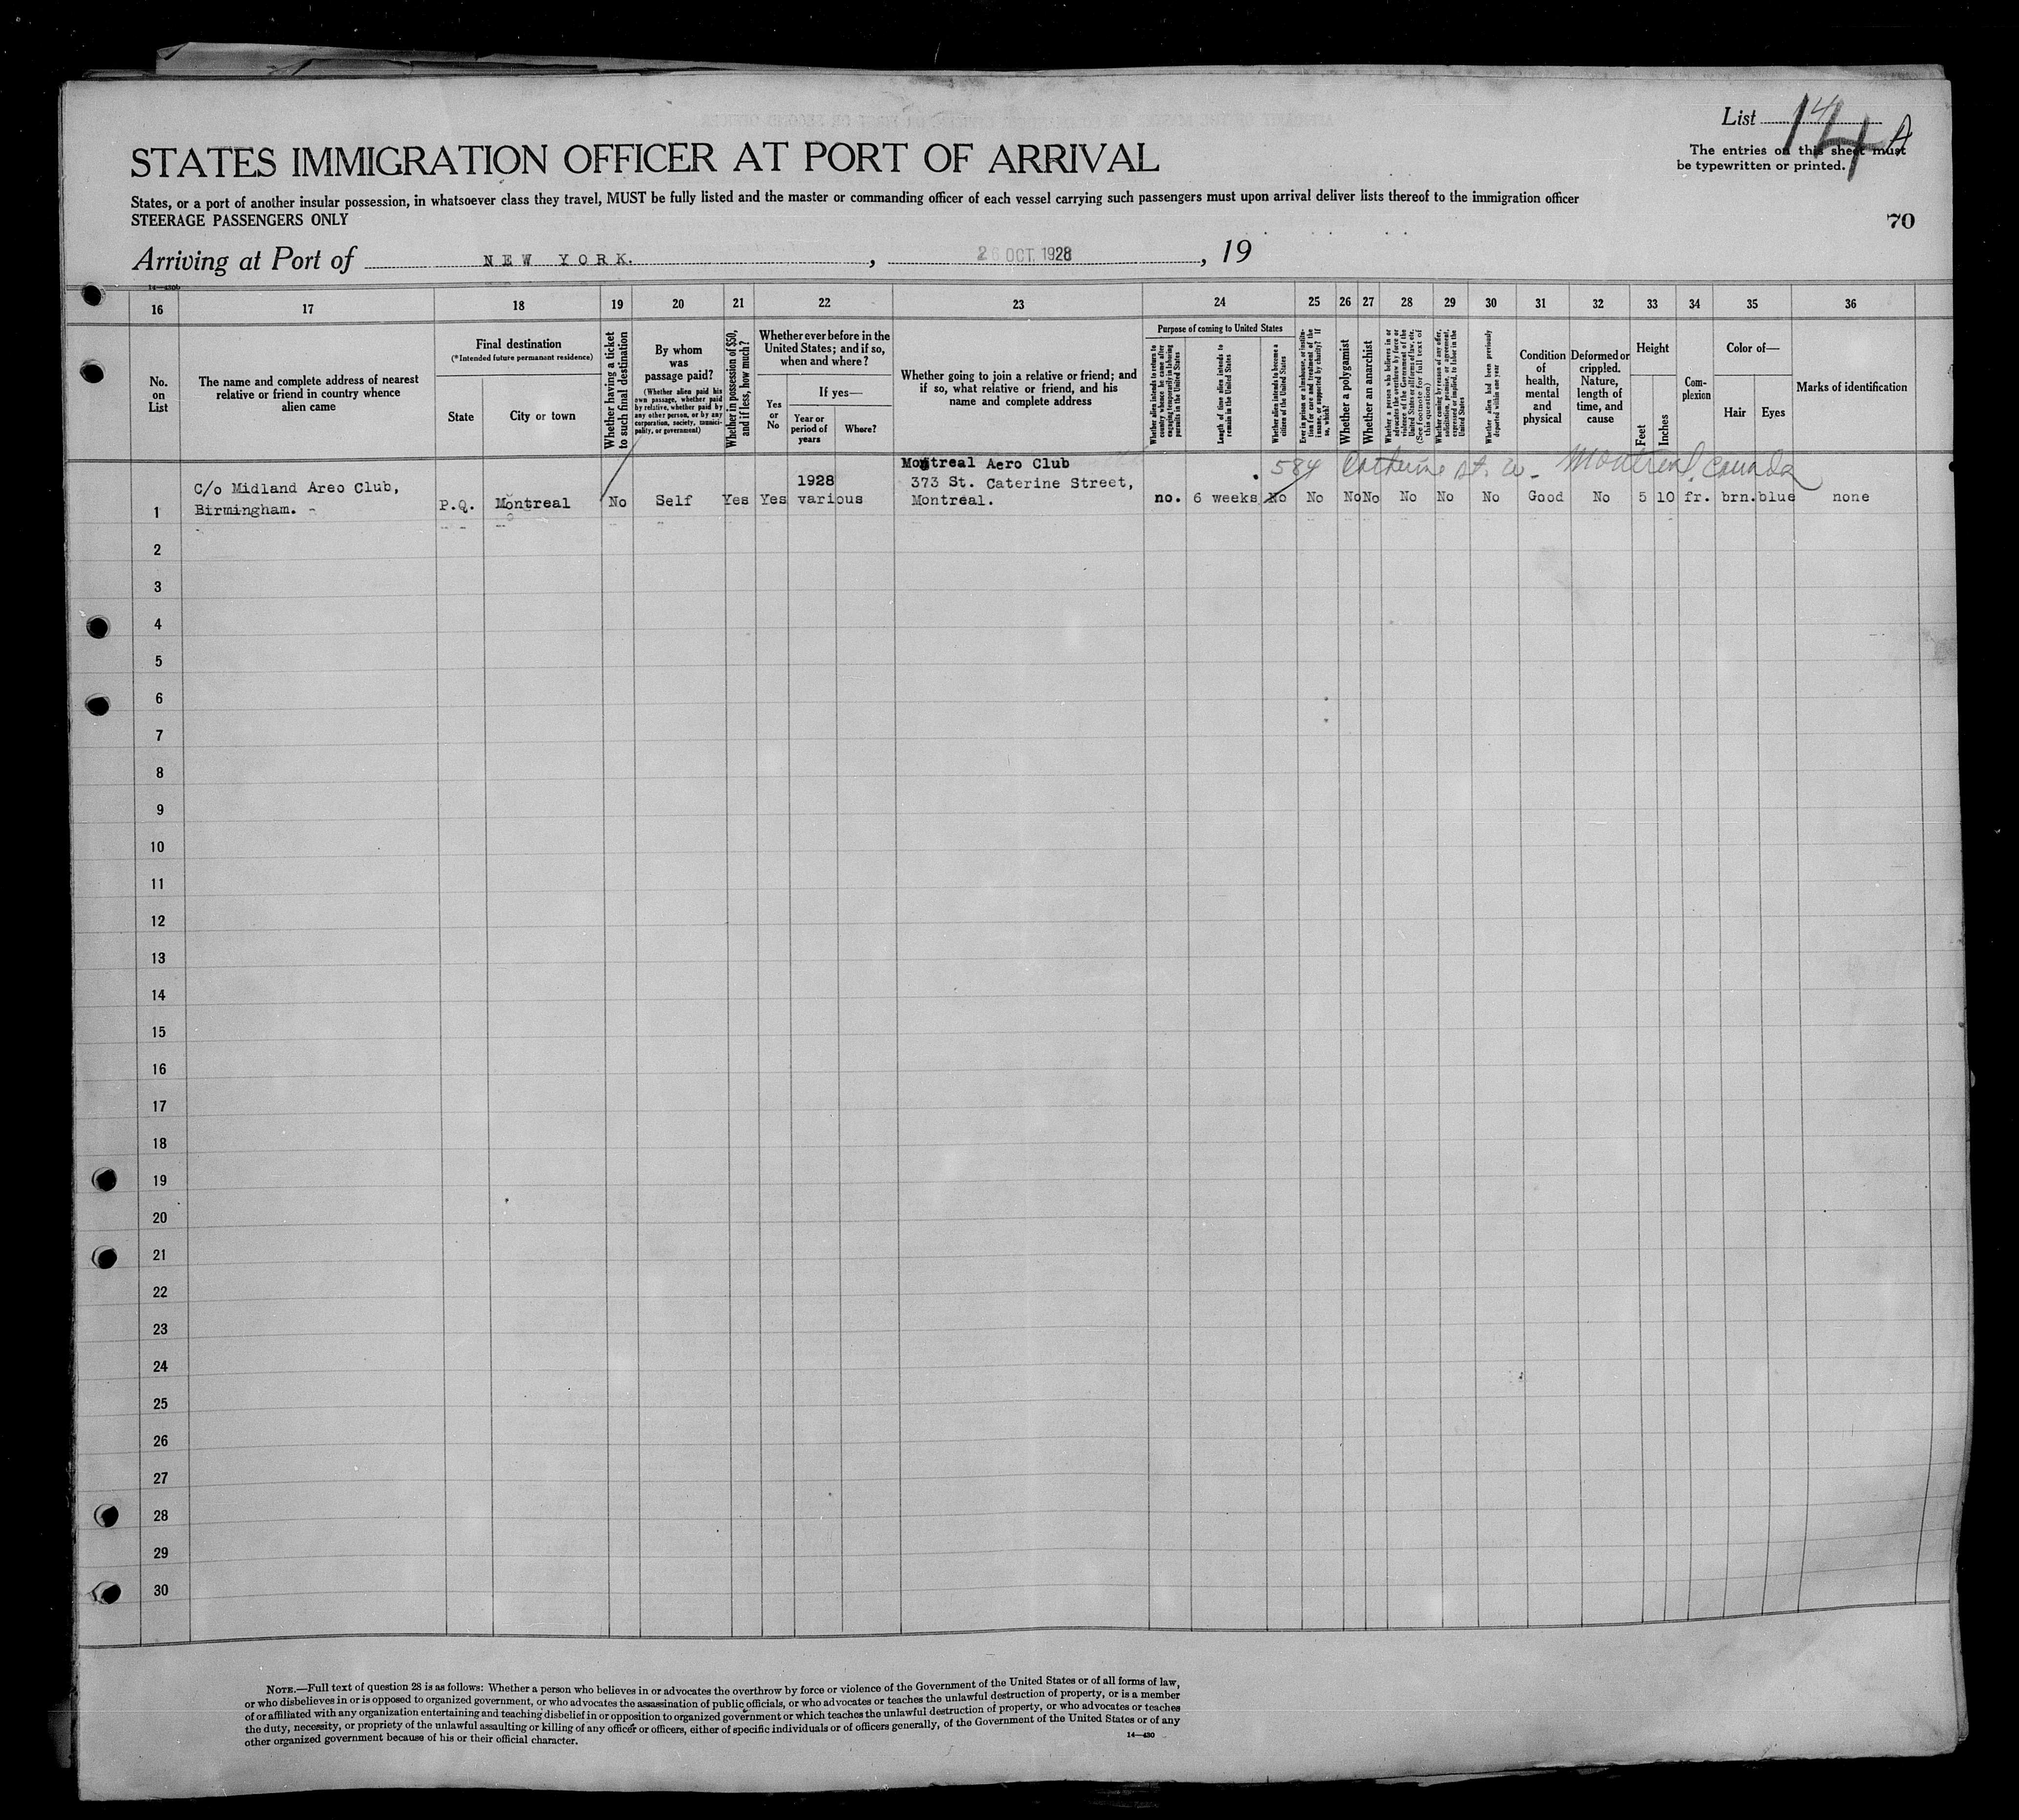 List 14 A
14
The entries on this sheet must
be typewritten or printed.
STATES IMMIGRATION OFFICER AT PORT OF ARRIVAL
States, or a port of another insular possession, in whatsoever class they travel, MUST be fully listed and the master or commanding officer of each vessel carrying such passengers must upon arrival deliver lists thereof to the immigration officer
STEERAGE PASSENGERS ONLY
70
Arriving at Port of NEW YORK. , 26 OCT 1928 , 19
14—430b
16 17 18 19 20 21 22 23 24 25 26 27 28 29 30 31 32 33 34 35 36
No.
on
List
The name and complete address of nearest
relative or friend in country whence
alien came
Final destination
(*Intended future permanent residence)
State
City or town
Whether having a ticket
to such final destination
By whom
was
passage paid?
(Whether alien paid his
own passage, whether paid
by relative, whether paid by
any other person, or by any
corporation, society, munici-
pality, or government)
Whether in possession of $50,
and if less, how much?
Whether ever before in the
United States; and if so,
when and where?
Yes
or
No
If yes—
Year or
period of
years
Where?
Whether going to join a relative or friend; and
if so, what relative or friend, and his
name and complete address
Purpose of coming to United States
Whether alien intends to return to
country whence he came after
engaging temporarily in laboring
pursuits in the United States
Length of time alien intends to
remain in the United States
Whether alien intends to become a
citizen of the United States
Ever in prison or almshouse, or institu-
tion for care and treatment of the
insane, or supported by charity? If
so, which?
Whether a polygamist
Whether an anarchist
Whether a person who believes in or
advocates the overthrow by force or
violence of the Government of the
United States or all forms of law, etc.
(See footnote for full text of
this question)
Whether coming by reason of any offer,
solicitation, promise, or agreement,
expressed or implied, to labor in the
United States
Whether alien had been previously
deported within one year
Condition
of
health,
mental
and
physical
Deformed or
crippled.
Nature,
length of
time, and
cause
Height
Feet
Inches
Com-
plexion
Color of—
Hair
Eyes
Marks of identification
584 Catherine St. W - Montreal, Canada
1
C/o Midland Areo Club,
Birmingham. -
P.Q. Montreal No Self Yes Yes
1928
various
Montreal Aero Club
373 St. Caterine Street,
Montreal.
no. 6 weeks No No No No No No No Good No 5 10 fr. brn. blue none
2
3
4
5
6
7
8
9
10
11
12
13
14
15
16
17
18
19
20
21
22
23
24
25
26
27
28
29
30
NOTE.—Full text of question 28 is as follows: Whether a person who believes in or advocates the overthrow by force or violence of the Government of the United States or of all forms of law,
or who disbelieves in or is opposed to organized government, or who advocates the assassination of public officials, or who advocates or teaches the unlawful destruction of property, or is a member
of or affiliated with any organization entertaining and teaching disbelief in or opposition to organized government or which teaches the unlawful destruction of property, or who advocates or teaches
the duty, necessity, or propriety of the unlawful assaulting or killing of any officer or officers, either of specific individuals or of officers generally, of the Government of the United States or of any
other organized government because of his or their official character.
14—430